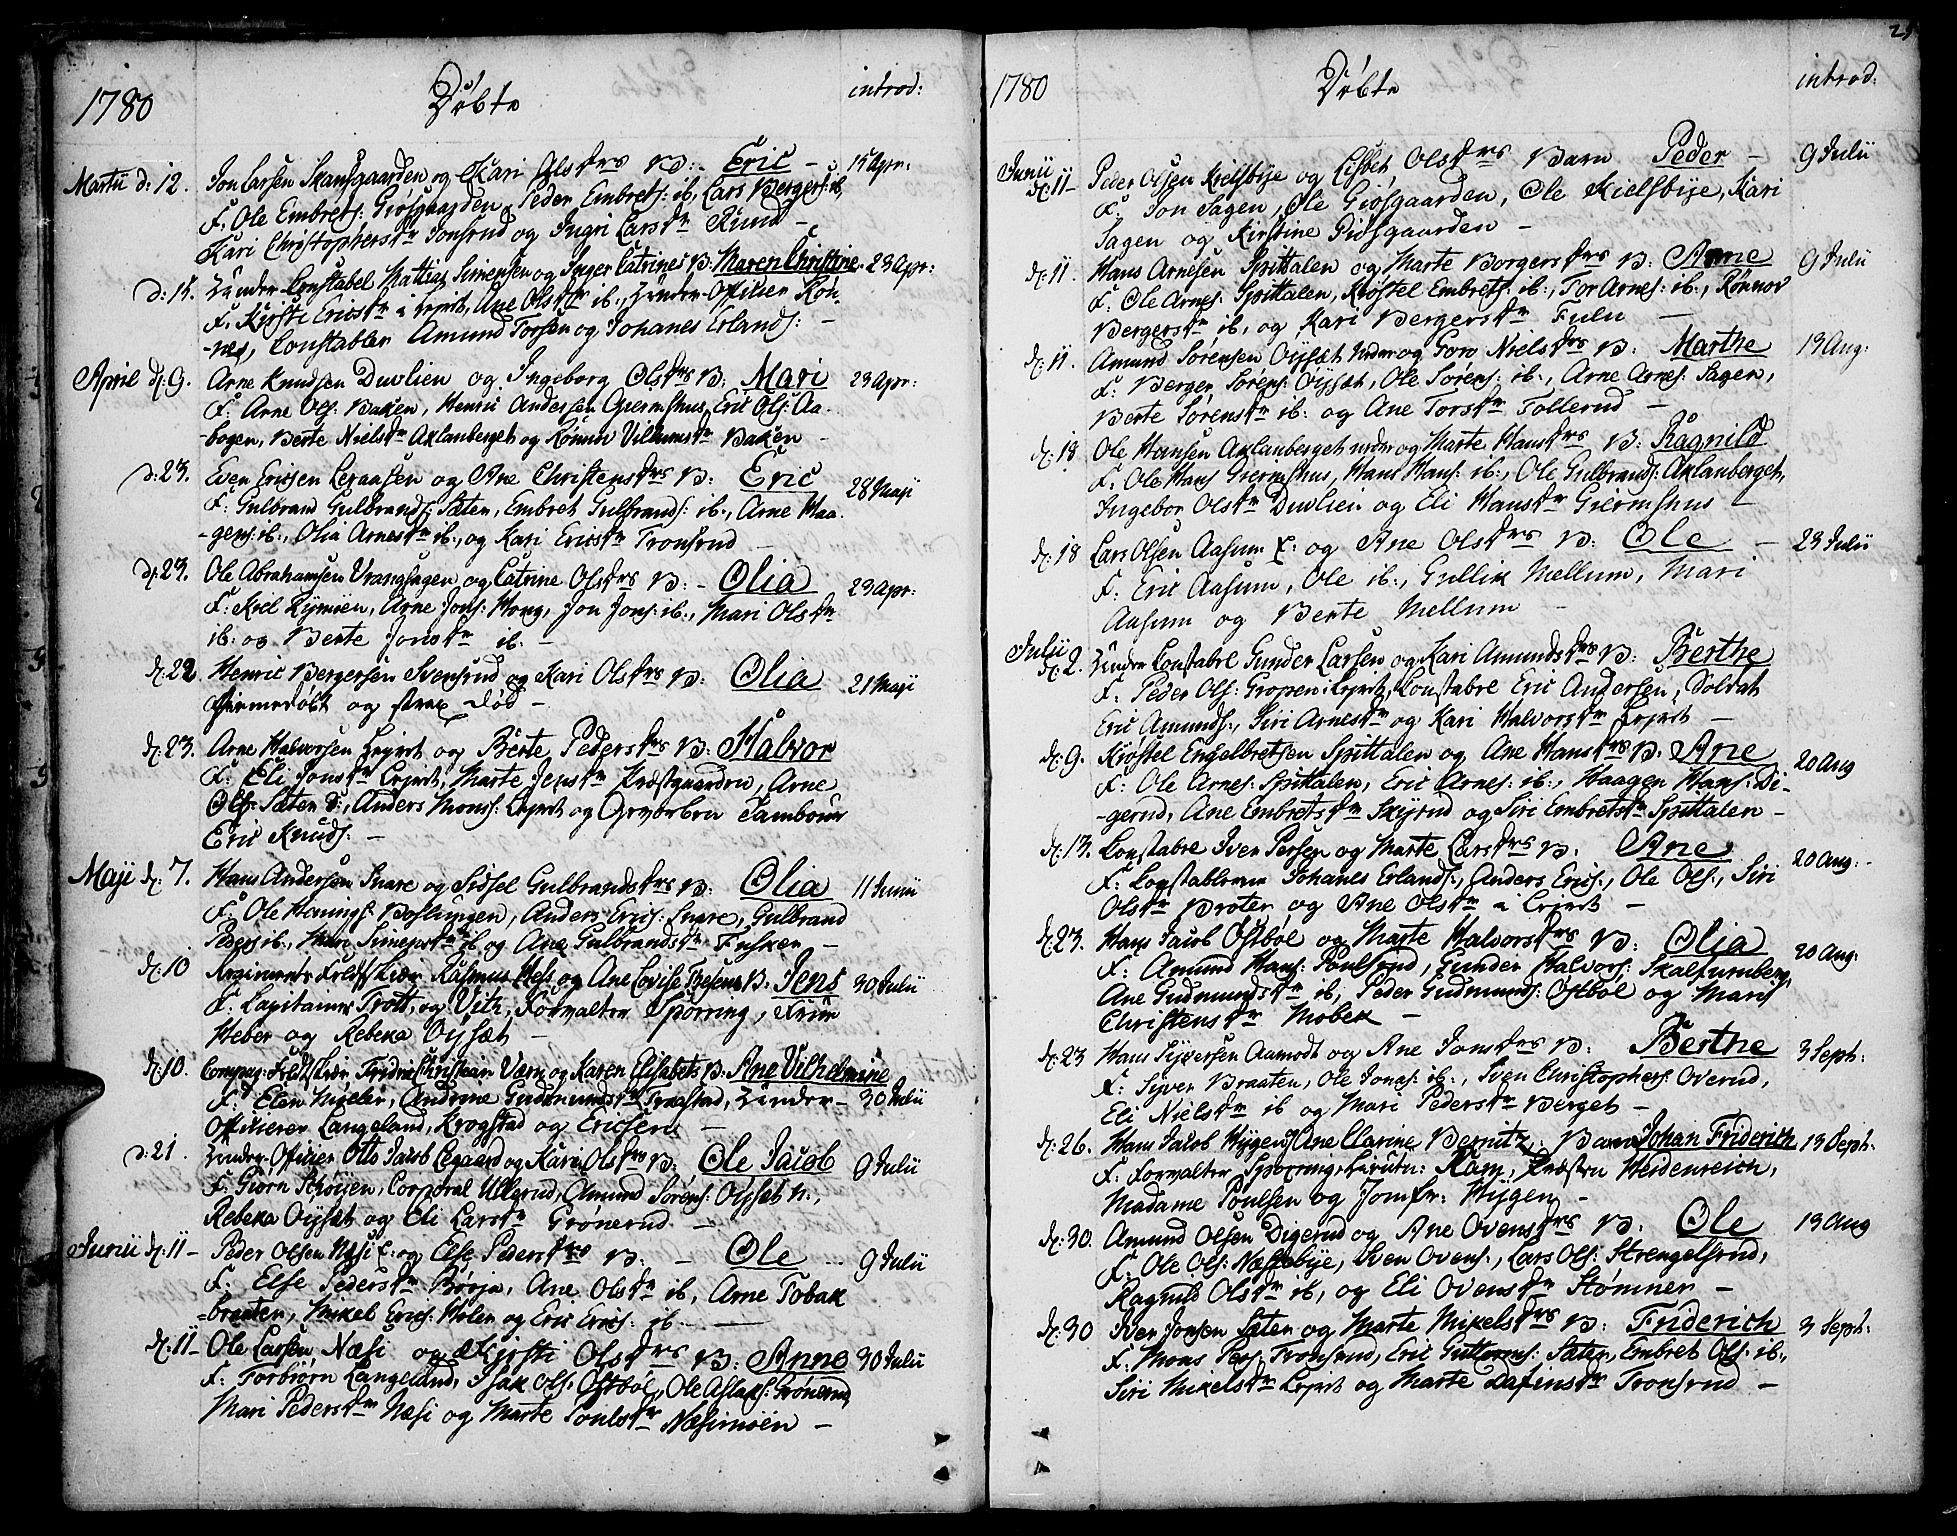 1780 Döbte introd:
Martii d: 12. Jon Larsen Skansgaarden og Kari Olsdrs B: Eric – 15 Apr:
F. Ole Embrets: Giösgaarden, Peder Embrets: ib, Lars Bergers: ib,
Kari Christophersdr Tonsrud og Ingri Larsdr Rund –
d: 15. Under-Constabel Mathias Simensen og Inger Catrines B: Maren Christine. 23 Apr:
F. Kirsti Ericsdr i Leyret, Ane Olsdr ib., Under-Officier
Constabler Amund Torsen og Johanes Erlands: –
April d: 9. Arne Knudsen Duvlien og Ingeborg Olsdrs B: Mari 23 Apr:
F: Arne Ols: Baken, Henric Andersen Giermshus, Eric Ols: Aa-
-bogen, Berte Nielsdr Axlanberget og Rönnou Villumsdr Baken –
d: 23. Even Ericsen Leraasen og Ane Christensdrs B: Eric 28 Maji
F: Gulbrand Gulbrands: Sæter, Embret Gulbrands: ib., Arne Haa-
-gens: ib., Olia Arnesdr ib., og Kari Ericsdr Tronsrud –
d: 23. Ole Abrahamsen Vranghagen og Catrine Olsdrs B: – Olia 23 Apr:
F: Kiel Rymoen, Arne Jons: Houg, Jon Jons: ib., Mari Olsdr
ib: og Berte Jonsdr ib. –
d: 22 Henric Bergersen Svensrud og Kari Olsdrs B: Olia 21 Maji
hiemedöbt og strax död –
d: 23. Arne Halvorsen Leyret og Berte Pedersdrs B: Halvor
F: Eli Jonsdr Leyret, Marte Jensdr Præstgaarden, Arne
Ols: Sæter d:, Anders Mons: Leyret og Tambour
Eric Knuds: –
Maji d: 7. Hans Andersen Snare og Sidsel Gulbrandsdrs B: Olia 11 Junii
F: Ole Hanings: Boslungen, Anders Erics: Snare, Gulbrand
Peders: ib., Mari Simensdr ib og Ane Gulbrandsdr –
d: 10 Regiments Feldskiær Rasmus Hess og Ane Lovise Thesens B: Jens 30 Julii
F: Capitainer Trott, og Vitz, Forvalter Spörring, Frue
Heber og Rebeka Öysæt –
d: 10. Compag: Feldskiær Fridric Christian Værn og Karen Elisabets B: Ane Vilhelmine
F: Elen Möller, Andrine Gudmundsdr Træstad, Under- 30 Julii
Officerer Langeland, Krogstad og Ericsen –
d: 21. Under-Officier Otto Jacob Legaard og Kari Olsdrs B: Ole Jacob 9 Julii
F. Giörn Schöyen, Corporal Ullerud, Amund Sörens: Öysæt n:,
Rebeka Öysæt og Eli Larsdr Grönerud –
Junii d: 11 – Peder Olsen Næsi E: og Else Pedersdrs B: – Ole 9 Julii
F. Else Pedersdr Börja, Ane Olsdr ib, Arne Tobak
-braaten, Mikel Erics: Holen og Eric Erics: ib. –
d: 11 – Ole Larsen Næsi og Kirsti Olsdrs B: Anne 30 Julii
F: Torbiörn Langeland, Isak Ols: Östböl, Ole Aslaks: Grönerud,
Mari Pedersdr Næsi og Marte Poulsdr Næsimoen –
1780 Döbte introd:
Junii d: 11 – Peder Olsen Kielsbye og Lisbet Olsdrs Barn Peder – 9 Julii
F: Jon Sagen, Ole Giösgaarden, Ole Kielsbye, Kari
Sagen og Kirstine Giösgaarden –
d: 11. Hans Arnesen Spittalen og Marte Borgersdrs B: Arne 9 Julii
F. Ole Arnes: Spittalen, Kröstel Embrets: ib., Tor Arnes: ib., Rönnov
Bergersdr ib, og Kari Bergersdr Fulu –
d: 11. Amund Sörensen Öysæt neder og Goro Nielsdrs B: Marthe 13 Aug:
F. Berger Sörens: Öysæt, Ole Sörens: ib., Arne Arnes: Sagen,
Berte Sörensdr ib: og Ane Torsdr Tollerud –
d: 18 Ole Hansen Axlanberget neder og Marte Hansdrs B: Ragnild
F. Ole Hans: Giermshus, Hans Hans: ib., Ole Gulbrands: Axlanberget,
Ingebor Olsdr Duvlien og Eli Hansdr Giermshus –
d: 18 Lars Olsen Aasum E: og Ane Olsdrs B: Ole – 23 Julii
F. Eric Aasum, Ole ib., Gullik Mellum, Mari
Aasum og Berte Mellum –
Julii d: 2. Under Constabel Gunder Larsen og Kari Amundsdrs B: Berthe
F. Peder Ols: Gropen i Leyret, Constabel Eric Andersen, Soldat
Eric Amunds:, Siri Arnesdr og Kari Halvorsdr Leyret –
d: 9. Kröstel Engelbretsen Spittalen og Ane Hansdrs B: Ane 20 Aug
F: Ole Arnes: Spittalen, Eric Arnes: ib., Haagen Hans: Di-
-gerud, Ane Embretsdr Skyrud og Siri Embretsdr Spittalen –
d: 13. Constabel Iver Persen og Marte Larsdrs B. Ane
F: Constablerne Johanes Erlands:, Anders Erics:, Ole Ols:, Siri 20 Aug:
Olsdr Broten og Ane Olsdr i Leyret –
d: 23. Hans Jacob Östböl og Marte Halvorsdrs B: Olia
F. Amund Hans: Poulsrud, Gunder Halvors: Skalsumberg, 20 Aug:
Ane Gudmundsdr ib, Peder Gudmunds: Östböl og Mari
Christensdr Mobek –
d: 23 Hans Syversen Aamodt og Ane Jonsdrs B: Berthe 3 Sept:
F: Syver Braaten, Ole Jons: ib., Sven Christophers: Overud,
Eli Nielsdr ib og Mari Pedersdr Berget –
d: 26. Hans Jacob Hygen, Ane Clarine Bernitz: Barn Johan Friderich 13 Sept:
F. Forvalter Sporring, Lieutn: Ram, Præsten Heidenreich,
Madame Poulsen og Jomfr: Hygen –
d: 30. Amund Olsen Digerud og Ane Ovensdrs B: Ole 13 Aug
F. Ole Ols: Næstebye, Sven Ovens:, Lars Ols: Strengelsrud,
Ragnild Olsdr ib, og Eli Ovensdr Stömner –
d: 30 Iver Jonsen Sæter og Marte Mikelsdrs B: Friderich 3 Sept:
F. Mons Pers: Tronsrud, Eric Guttorms: Sæter, Embret Ols: ib.,
Siri Mikelsdr Leyret og Marte Tronsrud –